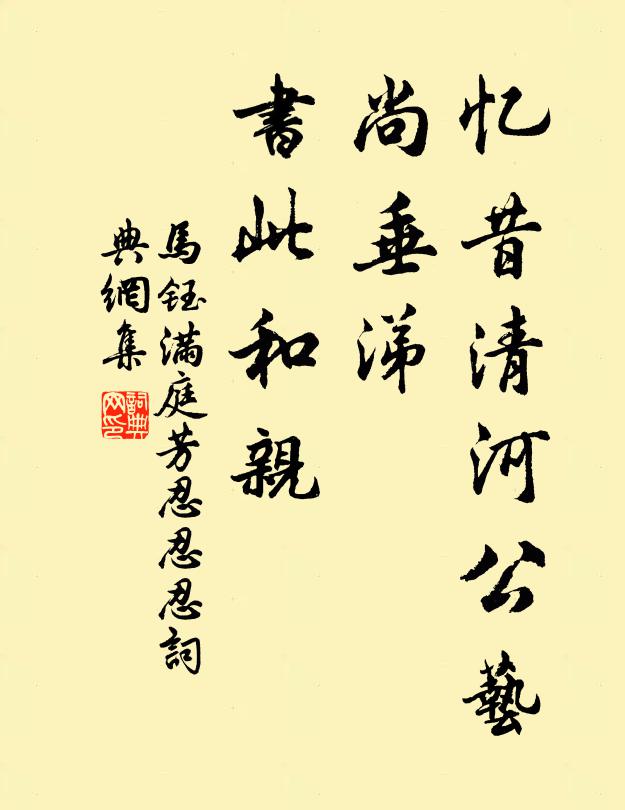 忆昔清河公藝
尚垂涕
書此和親
馬鈺滿庭芳忍忍忍詞
典網集
詞典網印